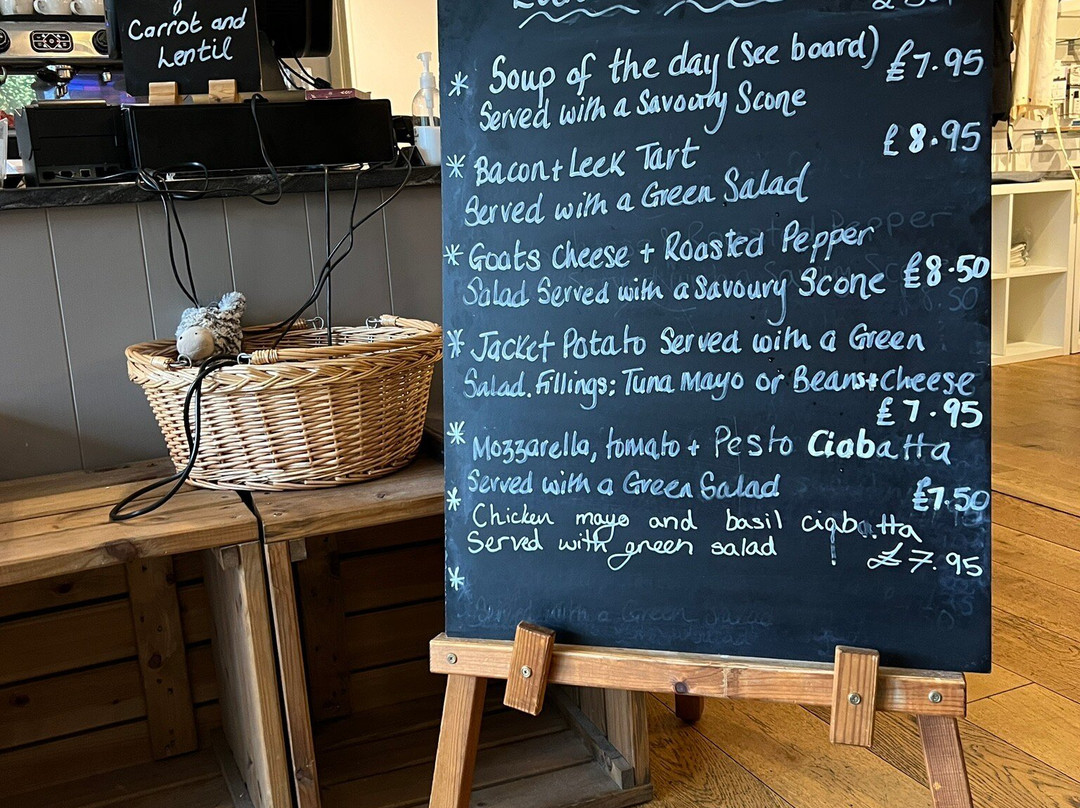 Carrot and
Lentil
* Soup of the day (See board) £7.95
Served with a Savoury Scone
£8.95
* Bacon + Leek Tart
Served with a Green Salad
* Goats Cheese + Roasted Pepper
Salad Served with a Savoury Scone £8.50
* Jacket Potato Served with a Green
Salad. Fillings: Tuna Mayo or Beans + Cheese
£7.95
* Mozzarella, tomato + Pesto Ciabatta
Served with a Green Salad £7.50
* Chicken mayo and basil ciabatta
Served with green salad £7.95
*